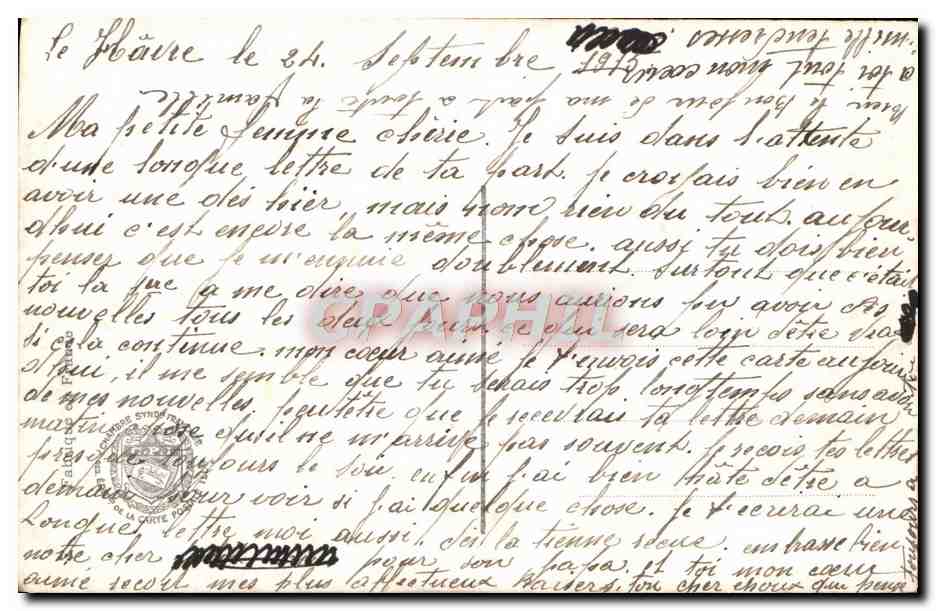 Le Hâvre le 24 Septembre 1915
Ma petite femme chérie. Je suis dans l'attente
d'une longue lettre de ta part. Je croyais bien en
avoir une dés hier, mais non rien du tout. aujour
d'hui c'est encore la même chose. aussi tu dois bien
penser que je m'ennuie doublement surtout que c'était
toi la 1ère a me dire que nous aurions pu avoir des
nouvelles tous les deux jours ce qui sera loin d'être vrai
si cela continue. mon cœur aimé je t'envois cette carte aujour
d'hui, il me semble que tu serais trop longtemps sans avoir
de mes nouvelles. peutêtre que je recevrais ta lettre demain
matin, chose qu'il ne m'arrive pas souvent. Je reçois tes lettres
presque toujours le soir. enfin j'ai bien hâte d'être a
demain pour voir si j'ai quelque chose. Je t'ecrirai une
Longue lettre moi aussi, dès la tienne reçue. embrasse bien
notre cher pour son papa. et toi mon cœur
aimé reçoit mes plus affectueux Baisers. ton cher choux qui pense
toujours a
Bien le bonjour de ma part a toute la famille
a toi tout mon cœur
mille tendresses
Fabrique Française
CHAMBRE SYNDICALE
DE LA CARTE POSTALE
CPAPHIL